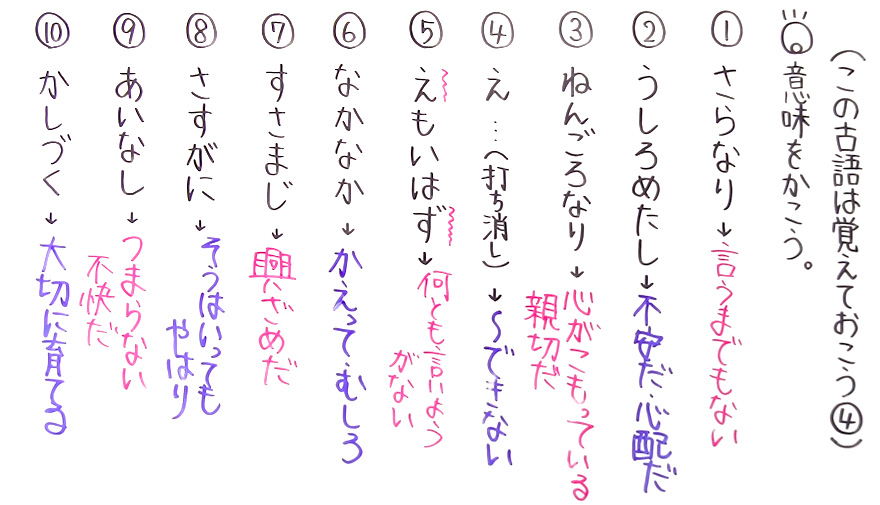 (この古語は覚えておこう④)
意味をかこう。
① さらなり→言うまでもない
② うしろめたし→不安だ・心配だ
③ ねんごろなり→心がこもっている
親切だ
④ え…(打ち消し)→～できない
⑤ えもいはず→何とも言いよう
がない
⑥ なかなか→かえって・むしろ
⑦ すさまじ→興ざめだ
⑧ さすがに→そうはいっても
やはり
⑨ あいなし→つまらない
不快だ
⑩ かしづく→大切に育てる